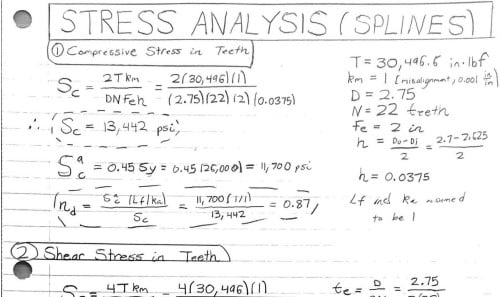 STRESS ANALYSIS (SPLINES)
① Compressive Stress in Teeth
Sc = 2Tkm / DNFeh = 2(30,496)(1) / (2.75)(22)(2)(0.0375)
∴ Sc = 13,442 psi
Sc^a = 0.45 Sy = 0.45(26,000) = 11,700 psi
nd = Sc^a (Lf/ka) / Sc = 11,700(1/1) / 13,442 = 0.87
T = 30,496.5 in·lbf
km = 1 [misalignment, 0.001 in/in]
D = 2.75
N = 22 teeth
Fe = 2 in
h = (Do-Di) / 2 = (2.7-2.625) / 2
h = 0.0375
Lf and ka
to be 1
② Shear Stress in Teeth
4Tkm = 4(30,496)(1)
te = D = 2.75